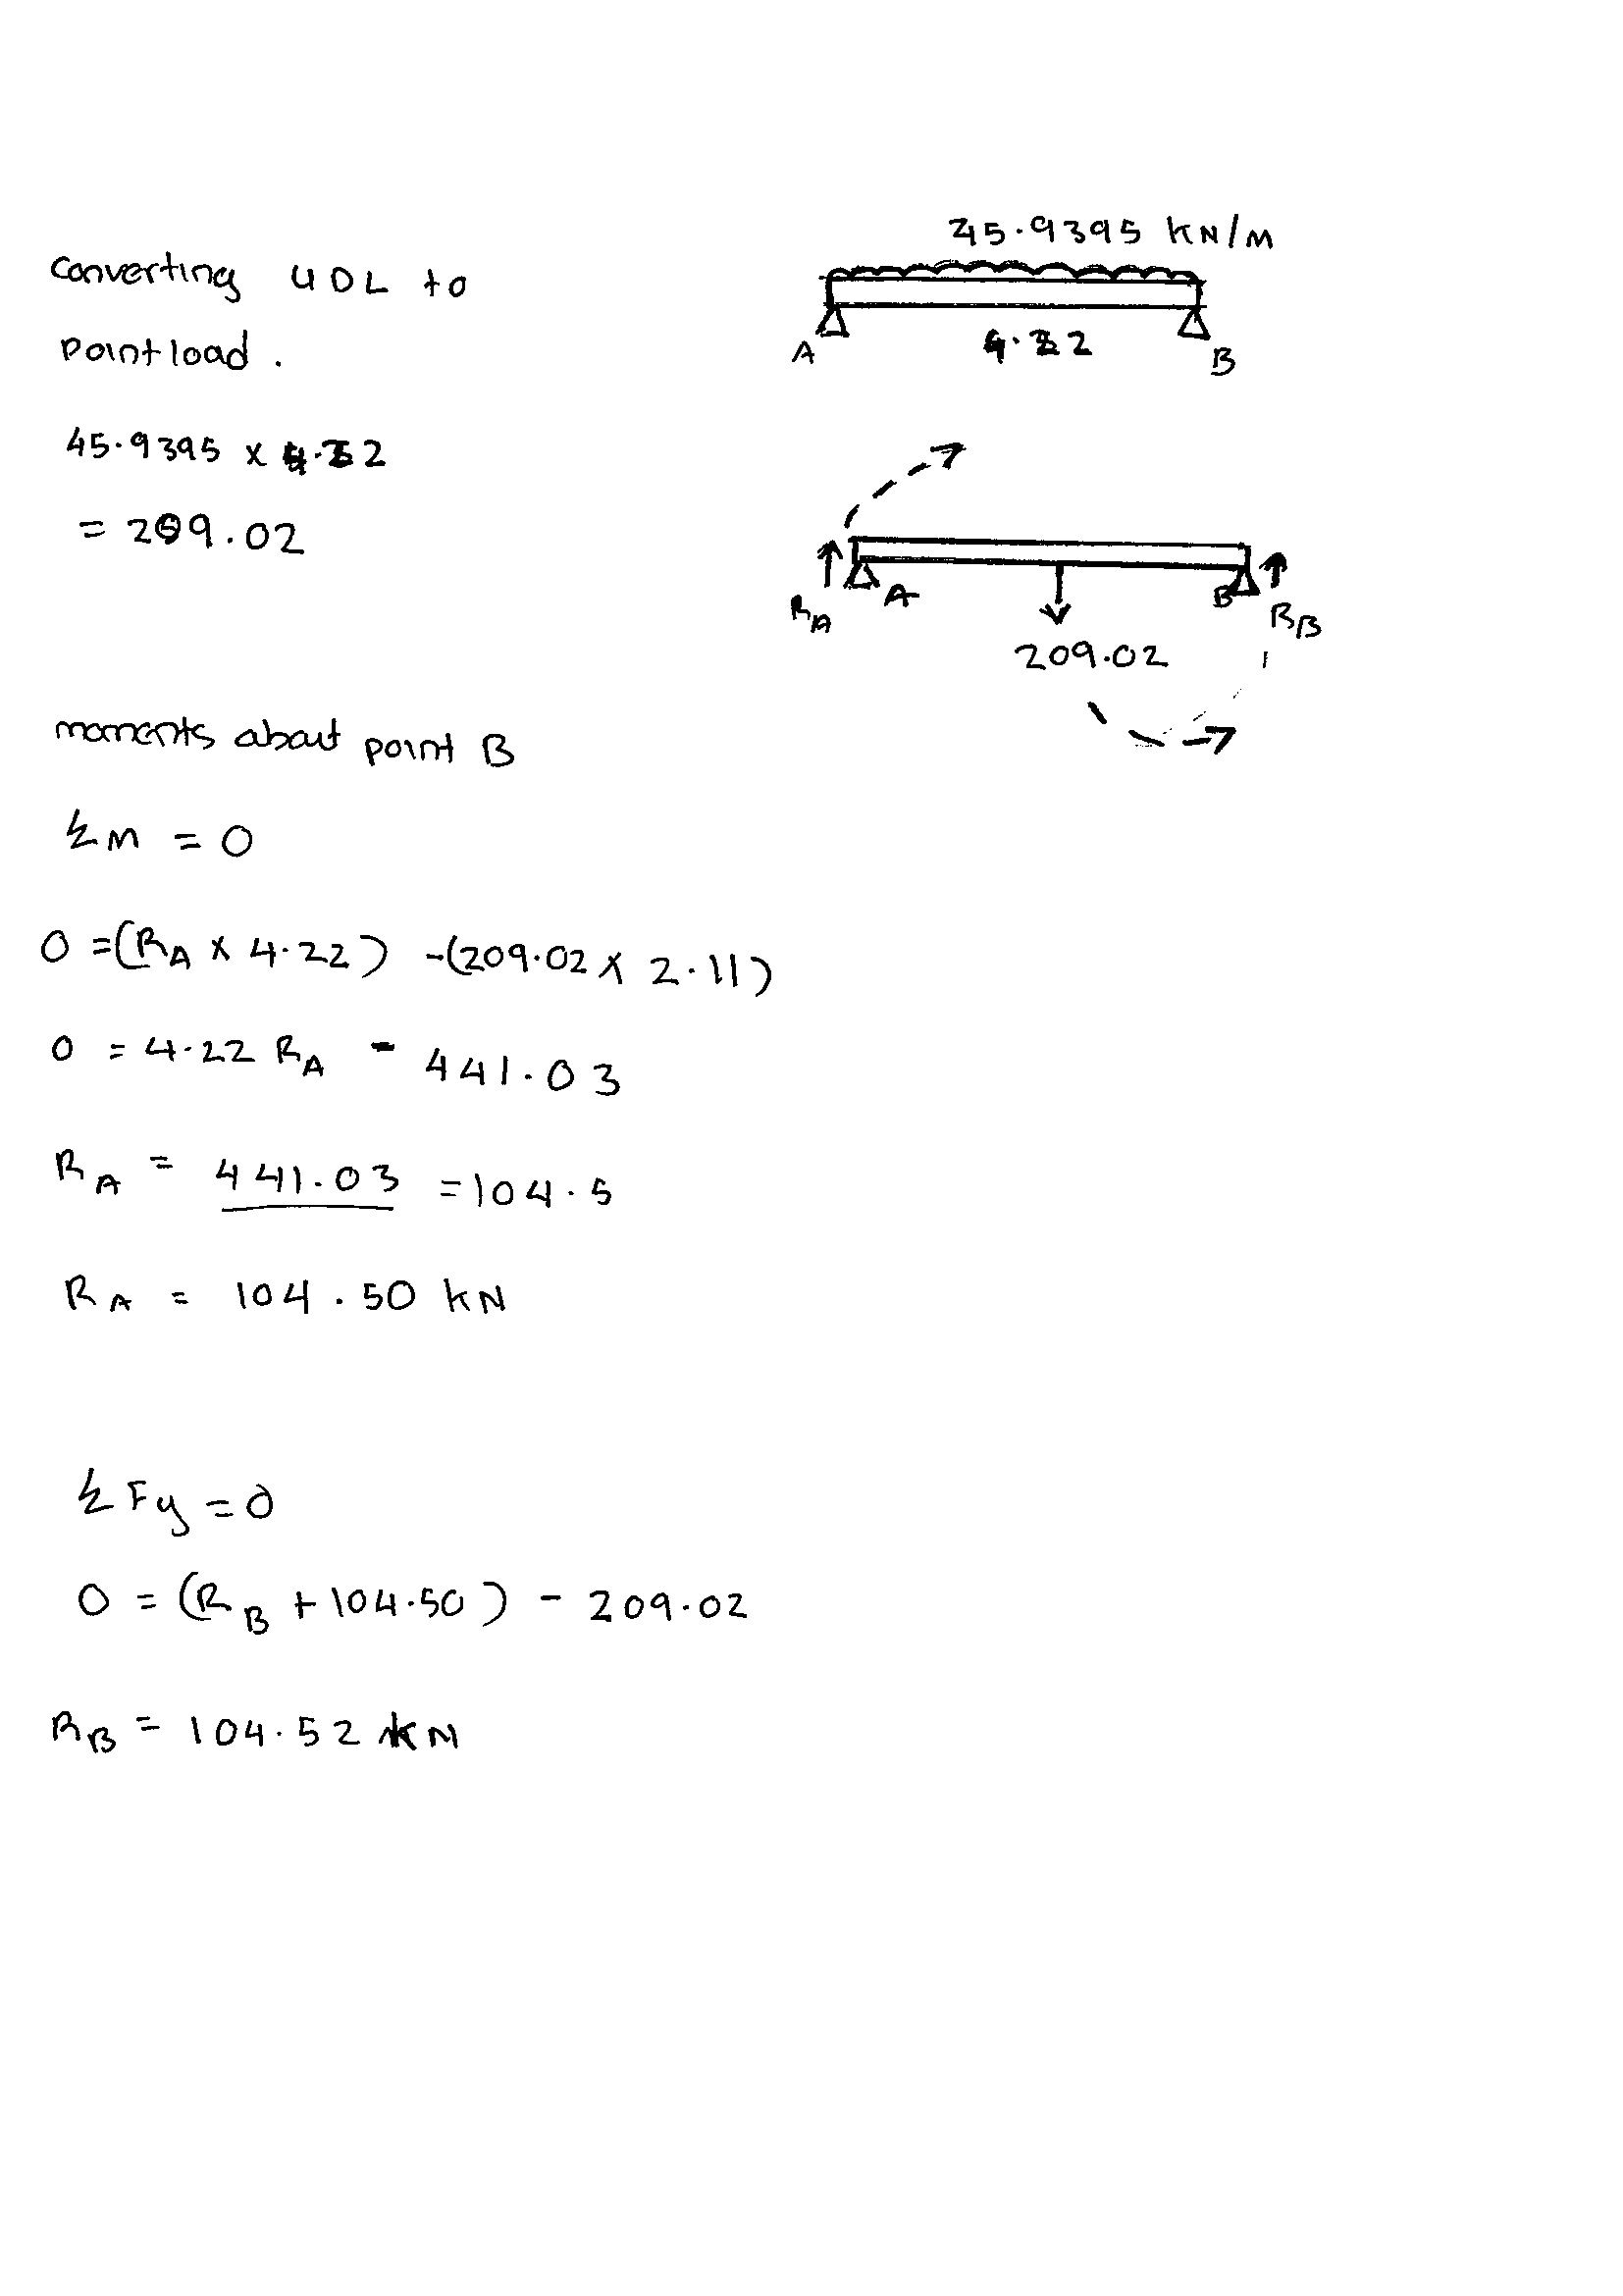 45.9395 kN/m
converting UDL to
A 4.22 B
point load.
45.9395 x 4.22
= 209.02
RA A B RB
209.02
moments about point B
ΣM = 0
0 = (RA x 4.22) -(209.02 x 2.11)
0 = 4.22 RA - 441.03
RA = 441.03 = 104.5
RA = 104.50 kN
ΣFy = 0
0 = (RB + 104.50) - 209.02
RB = 104.52 kN